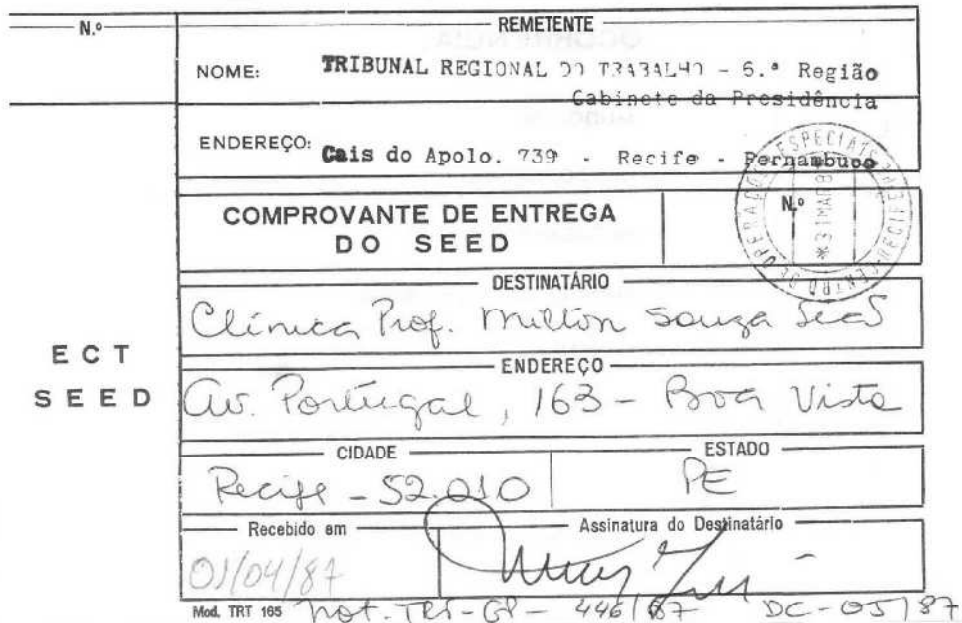 N.º
REMETENTE
NOME: TRIBUNAL REGIONAL DO TRABALHO - 6.ª Região
Gabinete da Presidência
ENDEREÇO: Cais do Apolo. 739 - Recife - Pernambuco
COMPROVANTE DE ENTREGA
DO SEED
N.º
ESPECIAIS
CENTRO DE OPERAÇÕES
*31MAR8
DESTINATÁRIO
Clínica Prof. Milton Souza
ECT
SEED
ENDEREÇO
Av. Portugal, 163 - Boa Vista
CIDADE
ESTADO
Recife - 52.010
PE
Recebido em
Assinatura do Destinatário
01/04/87
Mod. TRT 165
not. TRT-GP- 446/87 DC-05/87